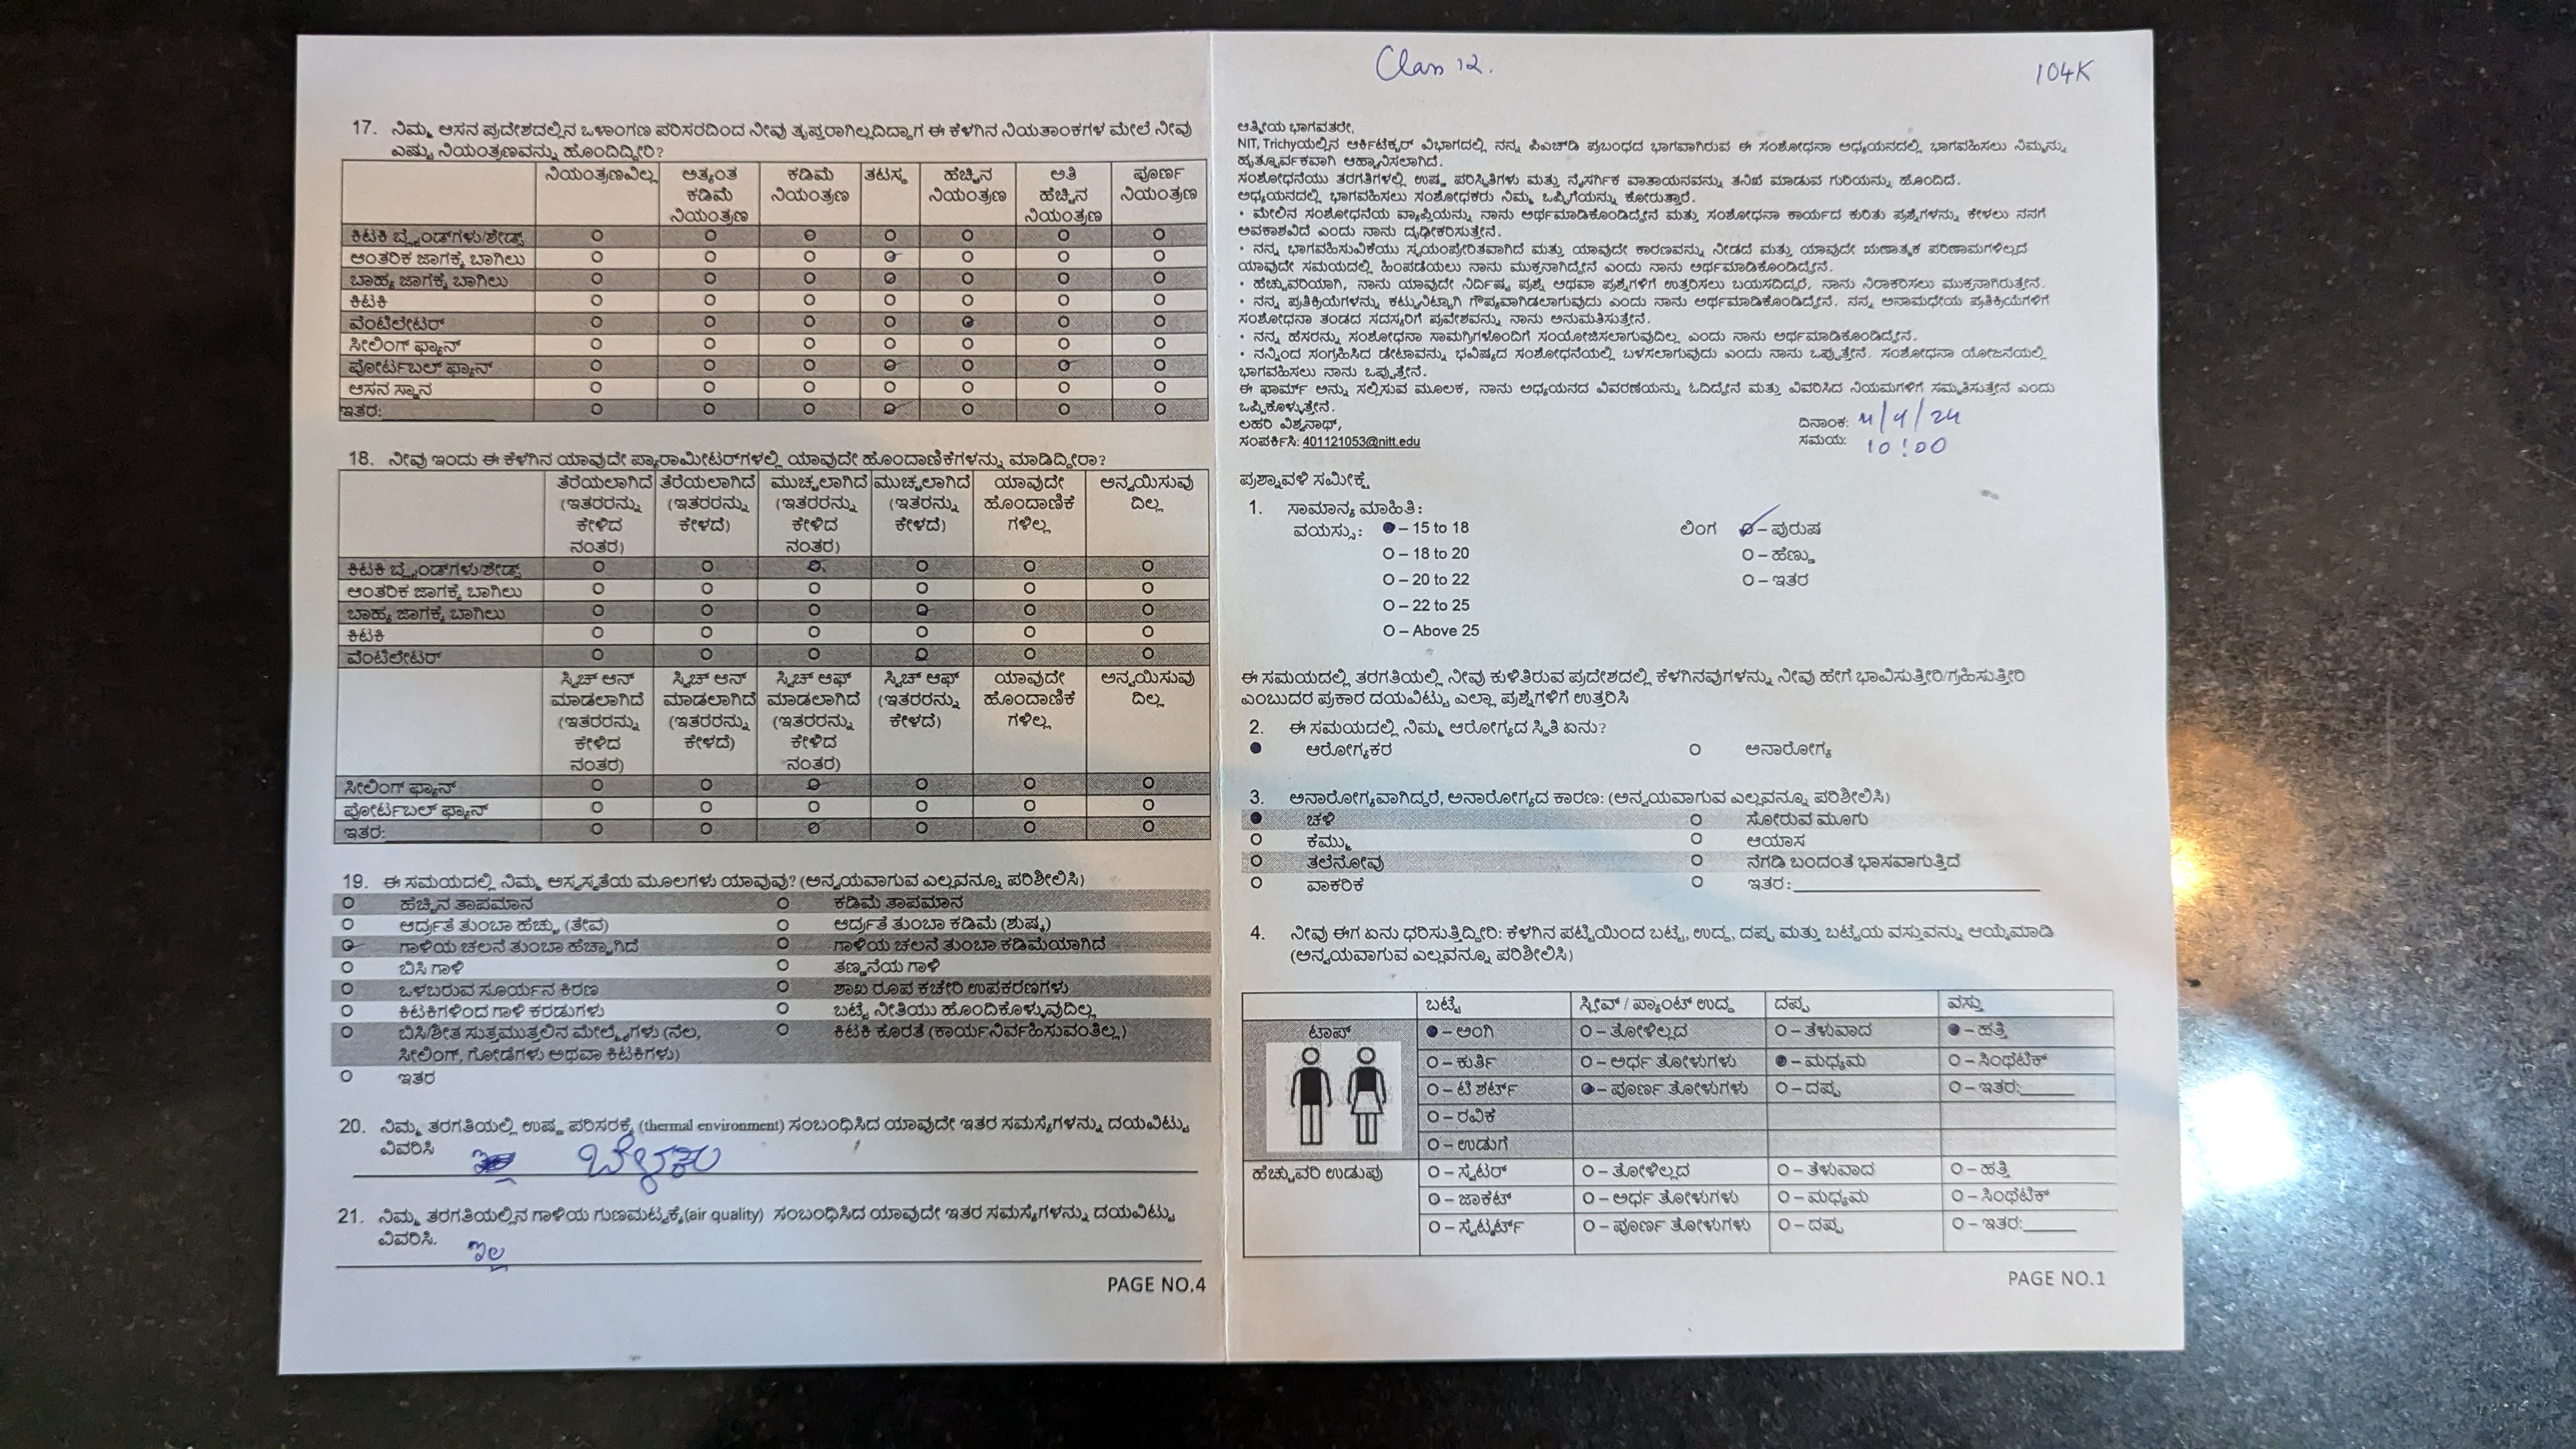 17. ನಿಮ್ಮ ಆಸನ ಪ್ರದೇಶದಲ್ಲಿನ ಒಳಾಂಗಣ ಪರಿಸರದಿಂದ ನೀವು ತೃಪ್ತರಾಗಿಲ್ಲದಿದ್ದಾಗ ಈ ಕೆಳಗಿನ ನಿಯತಾಂಕಗಳ ಮೇಲೆ ನೀವು
ಎಷ್ಟು ನಿಯಂತ್ರಣವನ್ನು ಹೊಂದಿದ್ದೀರಿ?
ನಿಯಂತ್ರಣವಿಲ್ಲ ಅತ್ಯಂತ ಕಡಿಮೆ ನಿಯಂತ್ರಣ ಕಡಿಮೆ ನಿಯಂತ್ರಣ ತಟಸ್ಥ ಹೆಚ್ಚಿನ ನಿಯಂತ್ರಣ ಅತಿ ಹೆಚ್ಚಿನ ನಿಯಂತ್ರಣ ಪೂರ್ಣ ನಿಯಂತ್ರಣ
ಕಿಟಕಿ ಬ್ಲೈಂಡ್‌ಗಳು/ಶೇಡ್ಸ್
ಆಂತರಿಕ ಜಾಗಕ್ಕೆ ಬಾಗಿಲು
ಬಾಹ್ಯ ಜಾಗಕ್ಕೆ ಬಾಗಿಲು
ಕಿಟಕಿ
ವೆಂಟಿಲೇಟರ್
ಸೀಲಿಂಗ್ ಫ್ಯಾನ್
ಪೋರ್ಟಬಲ್ ಫ್ಯಾನ್
ಆಸನ ಸ್ಥಾನ
ಇತರ:
18. ನೀವು ಇಂದು ಈ ಕೆಳಗಿನ ಯಾವುದೇ ಪ್ಯಾರಾಮೀಟರ್‌ಗಳಲ್ಲಿ ಯಾವುದೇ ಹೊಂದಾಣಿಕೆಗಳನ್ನು ಮಾಡಿದ್ದೀರಾ?
ತೆರೆಯಲಾಗಿದೆ (ಇತರರನ್ನು ಕೇಳಿದ ನಂತರ) ತೆರೆಯಲಾಗಿದೆ (ಇತರರನ್ನು ಕೇಳದೆ) ಮುಚ್ಚಲಾಗಿದೆ (ಇತರರನ್ನು ಕೇಳಿದ ನಂತರ) ಮುಚ್ಚಲಾಗಿದೆ (ಇತರರನ್ನು ಕೇಳದೆ) ಯಾವುದೇ ಹೊಂದಾಣಿಕೆ ಗಳಿಲ್ಲ ಅನ್ವಯಿಸುವು ದಿಲ್ಲ
ಕಿಟಕಿ ಬ್ಲೈಂಡ್‌ಗಳು/ಶೇಡ್ಸ್
ಆಂತರಿಕ ಜಾಗಕ್ಕೆ ಬಾಗಿಲು
ಬಾಹ್ಯ ಜಾಗಕ್ಕೆ ಬಾಗಿಲು
ಕಿಟಕಿ
ವೆಂಟಿಲೇಟರ್
ಸ್ವಿಚ್ ಆನ್ ಮಾಡಲಾಗಿದೆ (ಇತರರನ್ನು ಕೇಳಿದ ನಂತರ) ಸ್ವಿಚ್ ಆನ್ ಮಾಡಲಾಗಿದೆ (ಇತರರನ್ನು ಕೇಳದೆ) ಸ್ವಿಚ್ ಆಫ್ ಮಾಡಲಾಗಿದೆ (ಇತರರನ್ನು ಕೇಳಿದ ನಂತರ) ಸ್ವಿಚ್ ಆಫ್ (ಇತರರನ್ನು ಕೇಳದೆ) ಯಾವುದೇ ಹೊಂದಾಣಿಕೆ ಗಳಿಲ್ಲ ಅನ್ವಯಿಸುವು ದಿಲ್ಲ
ಸೀಲಿಂಗ್ ಫ್ಯಾನ್
ಪೋರ್ಟಬಲ್ ಫ್ಯಾನ್
ಇತರ:
19. ಈ ಸಮಯದಲ್ಲಿ ನಿಮ್ಮ ಅಸ್ವಸ್ಥತೆಯ ಮೂಲಗಳು ಯಾವುವು? (ಅನ್ವಯವಾಗುವ ಎಲ್ಲವನ್ನೂ ಪರಿಶೀಲಿಸಿ)
ಹೆಚ್ಚಿನ ತಾಪಮಾನ ಕಡಿಮೆ ತಾಪಮಾನ
ಆರ್ದ್ರತೆ ತುಂಬಾ ಹೆಚ್ಚು (ತೇವ) ಆರ್ದ್ರತೆ ತುಂಬಾ ಕಡಿಮೆ (ಶುಷ್ಕ)
ಗಾಳಿಯ ಚಲನೆ ತುಂಬಾ ಹೆಚ್ಚಾಗಿದೆ ಗಾಳಿಯ ಚಲನೆ ತುಂಬಾ ಕಡಿಮೆಯಾಗಿದೆ
ಬಿಸಿ ಗಾಳಿ ತಣ್ಣನೆಯ ಗಾಳಿ
ಒಳಬರುವ ಸೂರ್ಯನ ಕಿರಣ ಶಾಖ ರೂಪ ಕಚೇರಿ ಉಪಕರಣಗಳು
ಕಿಟಕಿಗಳಿಂದ ಗಾಳಿ ಕರಡುಗಳು ಬಟ್ಟೆ ನೀತಿಯು ಹೊಂದಿಕೊಳ್ಳುವುದಿಲ್ಲ
ಬಿಸಿ/ಶೀತ ಸುತ್ತಮುತ್ತಲಿನ ಮೇಲ್ಮೈಗಳು (ನೆಲ, ಕಿಟಕಿ ಕೊರತೆ (ಕಾರ್ಯನಿರ್ವಹಿಸುವಂತಿಲ್ಲ)
ಸೀಲಿಂಗ್, ಗೋಡೆಗಳು ಅಥವಾ ಕಿಟಕಿಗಳು)
ಇತರ
20. ನಿಮ್ಮ ತರಗತಿಯಲ್ಲಿ ಉಷ್ಣ ಪರಿಸರಕ್ಕೆ (thermal environment) ಸಂಬಂಧಿಸಿದ ಯಾವುದೇ ಇತರ ಸಮಸ್ಯೆಗಳನ್ನು ದಯವಿಟ್ಟು
ವಿವರಿಸಿ ಬೆಳಕು
21. ನಿಮ್ಮ ತರಗತಿಯಲ್ಲಿನ ಗಾಳಿಯ ಗುಣಮಟ್ಟಕ್ಕೆ(air quality) ಸಂಬಂಧಿಸಿದ ಯಾವುದೇ ಇತರ ಸಮಸ್ಯೆಗಳನ್ನು ದಯವಿಟ್ಟು
ವಿವರಿಸಿ. ಇಲ್ಲ
PAGE NO.4
Class 12.
104K
ಆತ್ಮೀಯ ಭಾಗವತರೇ,
NIT, Trichyಯಲ್ಲಿನ ಆರ್ಕಿಟೆಕ್ಚರ್ ವಿಭಾಗದಲ್ಲಿ ನನ್ನ ಪಿಎಚ್‌ಡಿ ಪ್ರಬಂಧದ ಭಾಗವಾಗಿರುವ ಈ ಸಂಶೋಧನಾ ಅಧ್ಯಯನದಲ್ಲಿ ಭಾಗವಹಿಸಲು ನಿಮ್ಮನ್ನು
ಹೃತ್ಪೂರ್ವಕವಾಗಿ ಆಹ್ವಾನಿಸಲಾಗಿದೆ.
ಸಂಶೋಧನೆಯು ತರಗತಿಗಳಲ್ಲಿ ಉಷ್ಣ ಪರಿಸ್ಥಿತಿಗಳು ಮತ್ತು ನೈಸರ್ಗಿಕ ವಾತಾಯನವನ್ನು ತನಿಖೆ ಮಾಡುವ ಗುರಿಯನ್ನು ಹೊಂದಿದೆ.
ಅಧ್ಯಯನದಲ್ಲಿ ಭಾಗವಹಿಸಲು ಸಂಶೋಧಕರು ನಿಮ್ಮ ಒಪ್ಪಿಗೆಯನ್ನು ಕೋರುತ್ತಾರೆ.
• ಮೇಲಿನ ಸಂಶೋಧನೆಯ ವ್ಯಾಪ್ತಿಯನ್ನು ನಾನು ಅರ್ಥಮಾಡಿಕೊಂಡಿದ್ದೇನೆ ಮತ್ತು ಸಂಶೋಧನಾ ಕಾರ್ಯದ ಕುರಿತು ಪ್ರಶ್ನೆಗಳನ್ನು ಕೇಳಲು ನನಗೆ
ಅವಕಾಶವಿದೆ ಎಂದು ನಾನು ದೃಢೀಕರಿಸುತ್ತೇನೆ.
• ನನ್ನ ಭಾಗವಹಿಸುವಿಕೆಯು ಸ್ವಯಂಪ್ರೇರಿತವಾಗಿದೆ ಮತ್ತು ಯಾವುದೇ ಕಾರಣವನ್ನು ನೀಡದೆ ಮತ್ತು ಯಾವುದೇ ಋಣಾತ್ಮಕ ಪರಿಣಾಮಗಳಿಲ್ಲದೆ
ಯಾವುದೇ ಸಮಯದಲ್ಲಿ ಹಿಂಪಡೆಯಲು ನಾನು ಮುಕ್ತನಾಗಿದ್ದೇನೆ ಎಂದು ನಾನು ಅರ್ಥಮಾಡಿಕೊಂಡಿದ್ದೇನೆ.
• ಹೆಚ್ಚುವರಿಯಾಗಿ, ನಾನು ಯಾವುದೇ ನಿರ್ದಿಷ್ಟ ಪ್ರಶ್ನೆ ಅಥವಾ ಪ್ರಶ್ನೆಗಳಿಗೆ ಉತ್ತರಿಸಲು ಬಯಸದಿದ್ದರೆ, ನಾನು ನಿರಾಕರಿಸಲು ಮುಕ್ತನಾಗಿರುತ್ತೇನೆ.
• ನನ್ನ ಪ್ರತಿಕ್ರಿಯೆಗಳನ್ನು ಕಟ್ಟುನಿಟ್ಟಾಗಿ ಗೌಪ್ಯವಾಗಿಡಲಾಗುವುದು ಎಂದು ನಾನು ಅರ್ಥಮಾಡಿಕೊಂಡಿದ್ದೇನೆ. ನನ್ನ ಅನಾಮಧೇಯ ಪ್ರತಿಕ್ರಿಯೆಗಳಿಗೆ
ಸಂಶೋಧನಾ ತಂಡದ ಸದಸ್ಯರಿಗೆ ಪ್ರವೇಶವನ್ನು ನಾನು ಅನುಮತಿಸುತ್ತೇನೆ.
• ನನ್ನ ಹೆಸರನ್ನು ಸಂಶೋಧನಾ ಸಾಮಗ್ರಿಗಳೊಂದಿಗೆ ಸಂಯೋಜಿಸಲಾಗುವುದಿಲ್ಲ ಎಂದು ನಾನು ಅರ್ಥಮಾಡಿಕೊಂಡಿದ್ದೇನೆ.
• ನನ್ನಿಂದ ಸಂಗ್ರಹಿಸಿದ ಡೇಟಾವನ್ನು ಭವಿಷ್ಯದ ಸಂಶೋಧನೆಯಲ್ಲಿ ಬಳಸಲಾಗುವುದು ಎಂದು ನಾನು ಒಪ್ಪುತ್ತೇನೆ. ಸಂಶೋಧನಾ ಯೋಜನೆಯಲ್ಲಿ
ಭಾಗವಹಿಸಲು ನಾನು ಒಪ್ಪುತ್ತೇನೆ.
ಈ ಫಾರ್ಮ್ ಅನ್ನು ಸಲ್ಲಿಸುವ ಮೂಲಕ, ನಾನು ಅಧ್ಯಯನದ ವಿವರಣೆಯನ್ನು ಓದಿದ್ದೇನೆ ಮತ್ತು ವಿವರಿಸಿದ ನಿಯಮಗಳಿಗೆ ಸಮ್ಮತಿಸುತ್ತೇನೆ ಎಂದು
ಒಪ್ಪಿಕೊಳ್ಳುತ್ತೇನೆ.
ಲಹರಿ ವಿಶ್ವನಾಥ್, ದಿನಾಂಕ: 4/4/24
ಸಂಪರ್ಕಿಸಿ: 401121053@nitt.edu ಸಮಯ: 10:00
ಪ್ರಶ್ನಾವಳಿ ಸಮೀಕ್ಷೆ
1. ಸಾಮಾನ್ಯ ಮಾಹಿತಿ:
ವಯಸ್ಸು: – 15 to 18 ಲಿಂಗ – ಪುರುಷ
– 18 to 20 – ಹೆಣ್ಣು
– 20 to 22 – ಇತರ
– 22 to 25
– Above 25
ಈ ಸಮಯದಲ್ಲಿ ತರಗತಿಯಲ್ಲಿ ನೀವು ಕುಳಿತಿರುವ ಪ್ರದೇಶದಲ್ಲಿ ಕೆಳಗಿನವುಗಳನ್ನು ನೀವು ಹೇಗೆ ಭಾವಿಸುತ್ತೀರಿ/ಗ್ರಹಿಸುತ್ತೀರಿ
ಎಂಬುದರ ಪ್ರಕಾರ ದಯವಿಟ್ಟು ಎಲ್ಲಾ ಪ್ರಶ್ನೆಗಳಿಗೆ ಉತ್ತರಿಸಿ
2. ಈ ಸಮಯದಲ್ಲಿ ನಿಮ್ಮ ಆರೋಗ್ಯದ ಸ್ಥಿತಿ ಏನು?
ಆರೋಗ್ಯಕರ ಅನಾರೋಗ್ಯ
3. ಅನಾರೋಗ್ಯವಾಗಿದ್ದರೆ, ಅನಾರೋಗ್ಯದ ಕಾರಣ: (ಅನ್ವಯವಾಗುವ ಎಲ್ಲವನ್ನೂ ಪರಿಶೀಲಿಸಿ)
ಚಳಿ ಸೋರುವ ಮೂಗು
ಕೆಮ್ಮು ಆಯಾಸ
ತಲೆನೋವು ನೆಗಡಿ ಬಂದಂತೆ ಭಾಸವಾಗುತ್ತಿದೆ
ವಾಕರಿಕೆ ಇತರ:
4. ನೀವು ಈಗ ಏನು ಧರಿಸುತ್ತಿದ್ದೀರಿ: ಕೆಳಗಿನ ಪಟ್ಟಿಯಿಂದ ಬಟ್ಟೆ, ಉದ್ದ, ದಪ್ಪ ಮತ್ತು ಬಟ್ಟೆಯ ವಸ್ತುವನ್ನು ಆಯ್ಕೆಮಾಡಿ
(ಅನ್ವಯವಾಗುವ ಎಲ್ಲವನ್ನೂ ಪರಿಶೀಲಿಸಿ)
ಬಟ್ಟೆ ಸ್ಲೀವ್ / ಪ್ಯಾಂಟ್ ಉದ್ದ ದಪ್ಪ ವಸ್ತು
ಟಾಪ್ – ಅಂಗಿ – ತೋಳಿಲ್ಲದ – ತೆಳುವಾದ – ಹತ್ತಿ
– ಕುರ್ತಿ – ಅರ್ಧ ತೋಳುಗಳು – ಮಧ್ಯಮ – ಸಿಂಥೆಟಿಕ್
– ಟಿ ಶರ್ಟ್ – ಪೂರ್ಣ ತೋಳುಗಳು – ದಪ್ಪ – ಇತರ:
– ರವಿಕೆ
– ಉಡುಗೆ
ಹೆಚ್ಚುವರಿ ಉಡುಪು – ಸ್ವೆಟರ್ – ತೋಳಿಲ್ಲದ – ತೆಳುವಾದ – ಹತ್ತಿ
– ಜಾಕೆಟ್ – ಅರ್ಧ ತೋಳುಗಳು – ಮಧ್ಯಮ – ಸಿಂಥೆಟಿಕ್
– ಸ್ವೆಟ್ಶರ್ಟ್ – ಪೂರ್ಣ ತೋಳುಗಳು – ದಪ್ಪ – ಇತರ:
PAGE NO.1